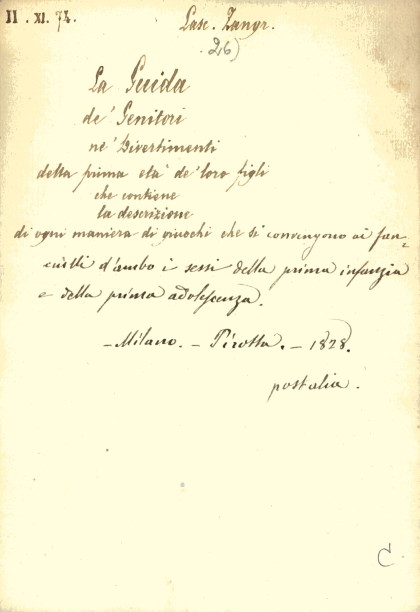 II . XI. 74.
Lasc. Zangr.
26)
La Guida
de' Genitori
ne' Divertimenti
della prima età de' loro figli
che contiene
la descrizione
di ogni maniera di giuochi che si convengono ai fan=
ciulli d'ambo i sessi della prima infanzia
e della prima adolescenza.
– Milano. – Pirotta. – 1828.
postalia.
C